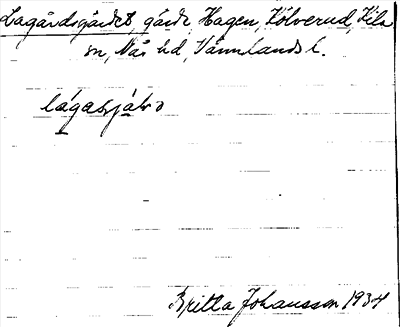 Lagårdsgärdet, gärde, Hagen, Kölverud, Kila
sn, Näs hd, Värmlands l.
Britta Johansson 1934